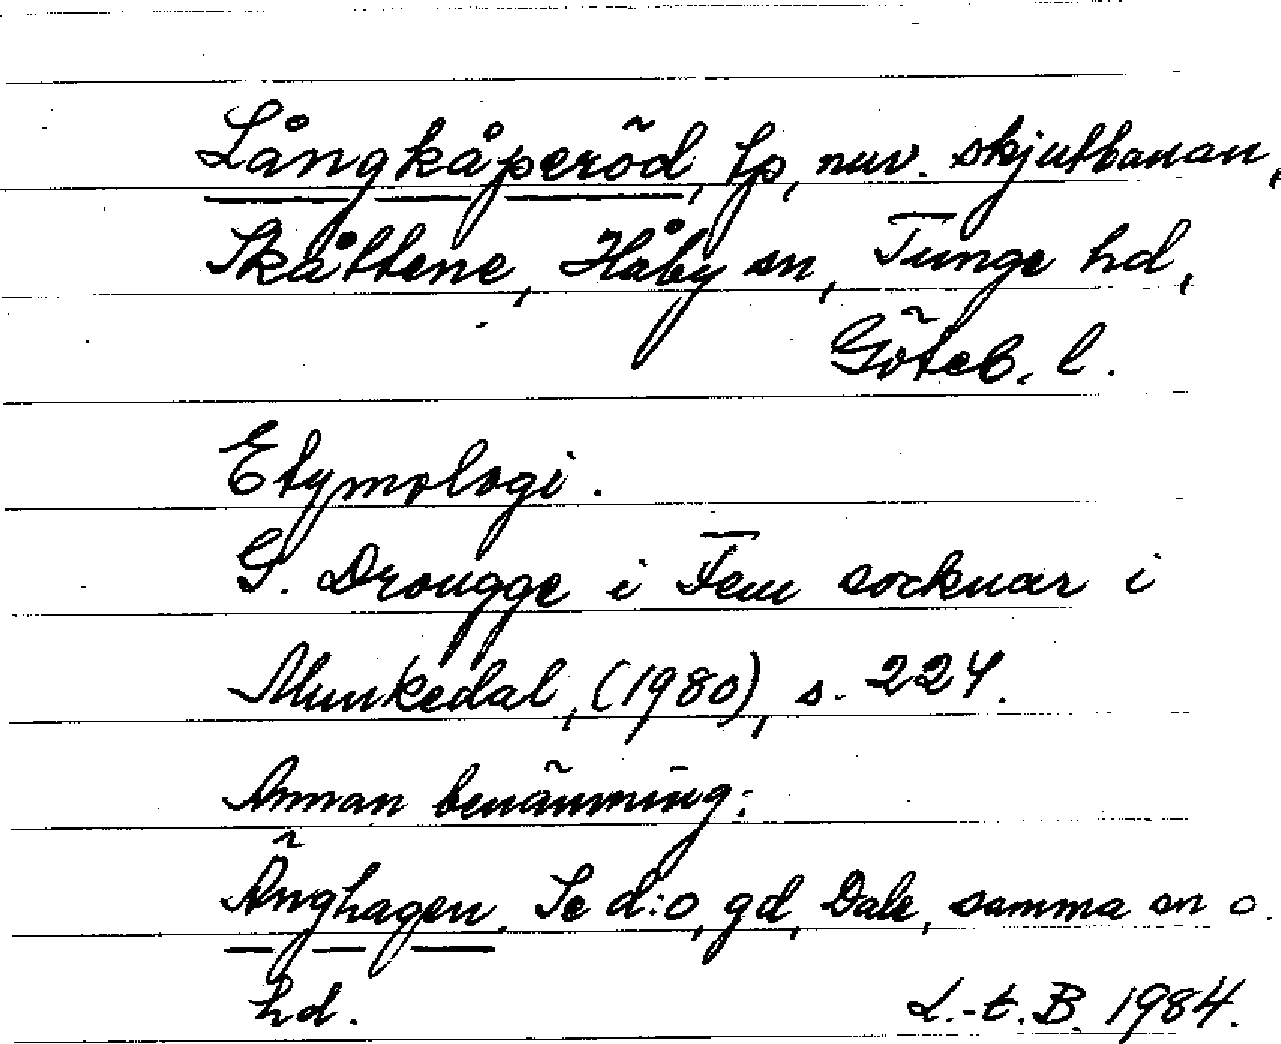 Långkåperöd, tp, nuv. skjutbanan,
Skåttene, Håby sn, Tunge hd,
Göteb. l.
Etymologi.
G. Drougge i Fem socknar i
Munkedal, (1980), s. 224.
Annan benämning:
Änghagen. Se d:o, gd, Dale, samma sn o.
hd.
L.-t. B. 1984.